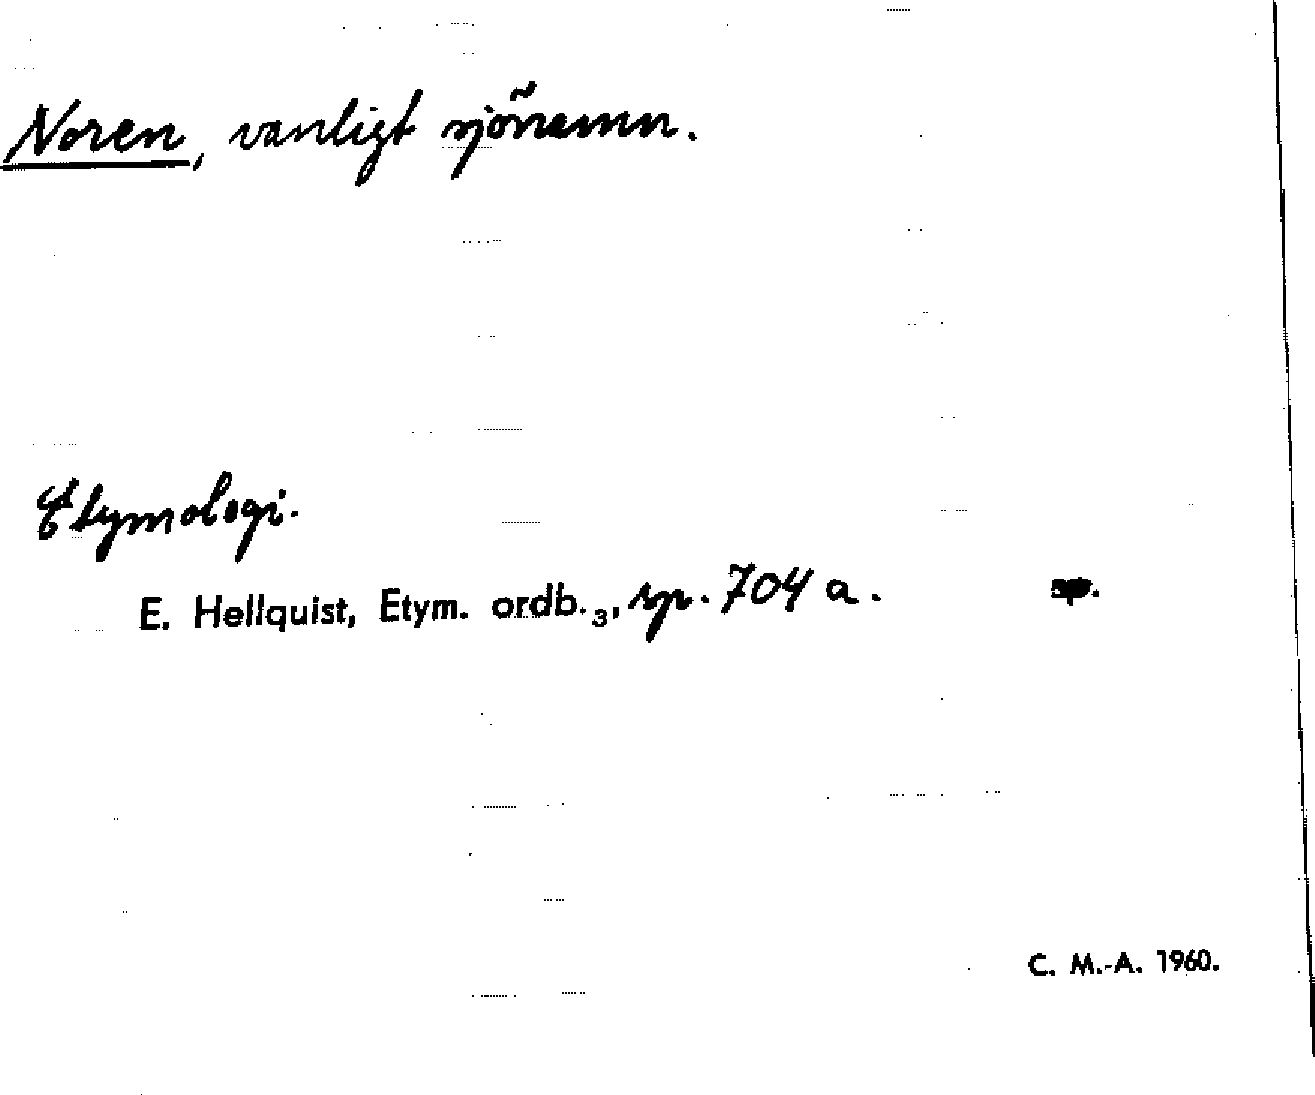 Noren, vanligt sjönamn.
Etymologi.
E. Hellquist, Etym. ordb.₃, sp. 704 a.
C. M.-A. 1960.